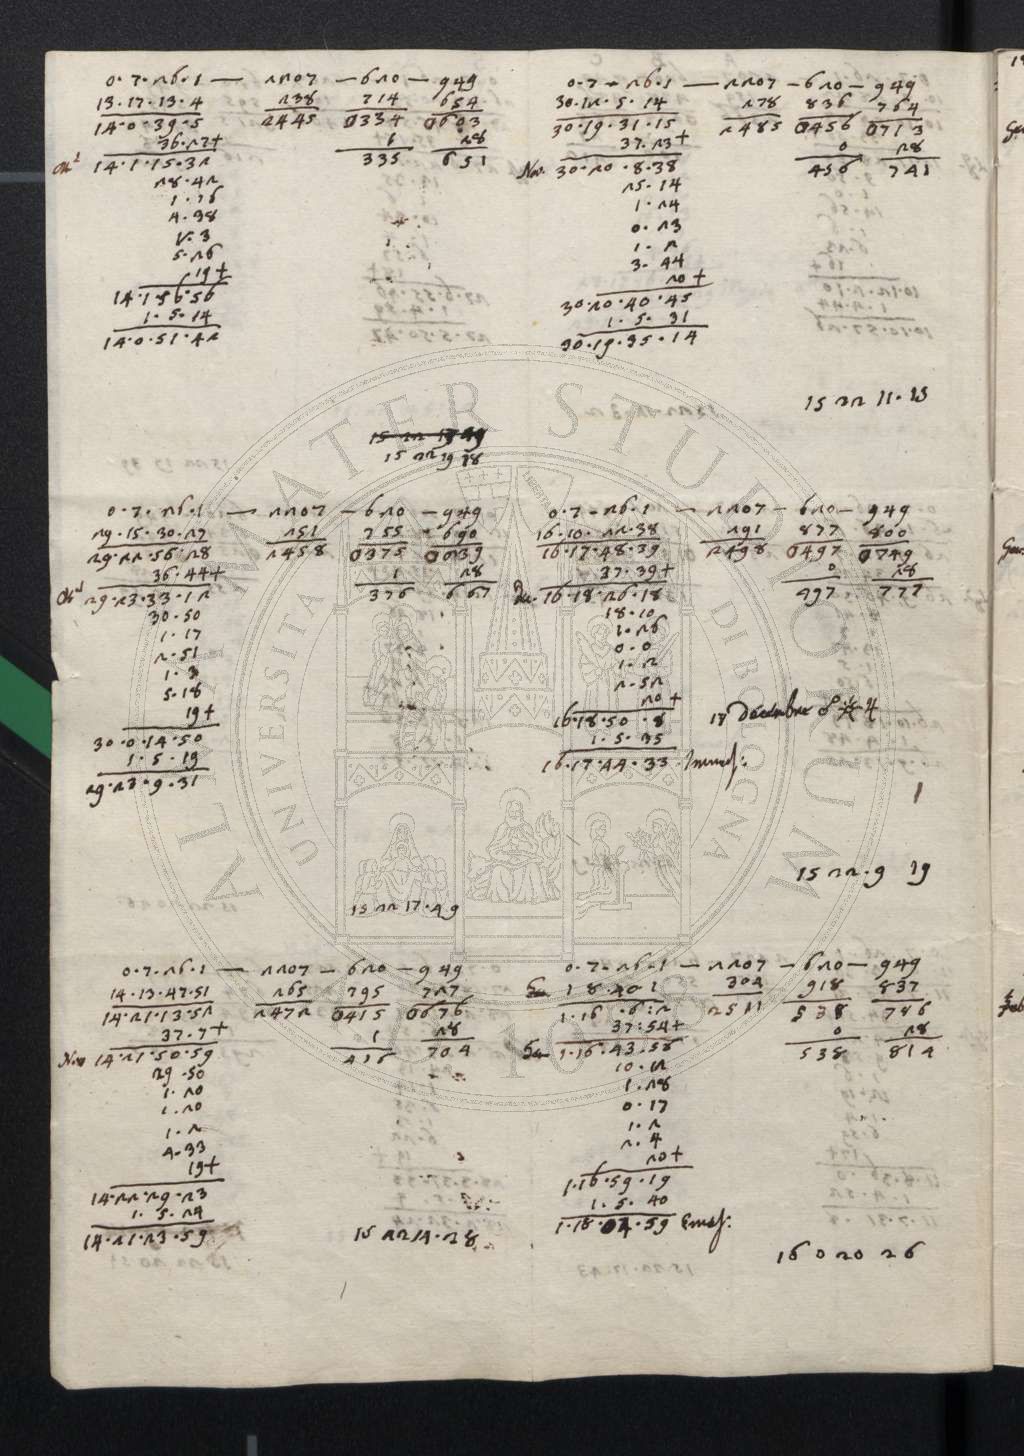 0·7·26·1 — 2207 — 620 — 949
13·17·13·4 238 714 654
14·0·39·5 2445 0334 0603
36·27+ 1 28
14·1·15·32 335 631
28·42
1·26
4·38
1·3
5·26
19+
14·1·56·56
1·5·14
14·0·51·42
15 22 19 28
0·7·26·1 — 2207 — 620 — 949
30·12·5·14 278 836 764
30·19·31·15 2485 0456 0713
37·23+ 0 28
Nov. 30·20·8·38 456 741
25·14
1·24
0·23
1·2
3·44
20+
30·20·40·45
1·5·31
30·19·35·14
15 22 11·13
0·7·26·1 — 2207 — 620 — 949
29·15·30·27 251 755 690
29·22·56·28 2458 0375 0639
36·44+ 1 28
29·23·33·12 376 667
30·50
1·17
2·51
1·3
5·18
19+
30·0·14·50
1·5·19
29·23·9·31
15 22 17·49
0·7·26·1 — 2207 — 620 — 949
16·10·22·38 291 877 800
16·17·48·39 2498 0497 0749
37·39+ 0 28
Dec. 16·18·26·18 497 777
18·10
1·26
0·0
1·2
2·52
20+
16·18·50·8
18 Decembre ☍ ☀ ♃
1·5·35
16·17·44·33
1
15 22·9 19
0·7·26·1 — 2207 — 620 — 949
14·13·47·51 265 795 727
14·21·13·52 2472 0415 0676
37·7+ 1 28
Nov 14·21·50·59 416 704
29·50
1·20
1·20
1·2
4·33
19+
14·22·29·23
1·5·24
14·21·23·59
15 22 14·28
0·7·26·1 — 2207 — 620 — 949
1 8·40 1 304 918 837
1·16·6·2 2511 538 786
37·54+ 0 28
1·16·43·56 538 814
10·12
1·28
0·17
1·2
2·4
20+
1·16·59·19
1·5·40
1·18·04·59
16 0 20 26
MATER STUDIORUM
UNIVERSITA DI BOLOGNA